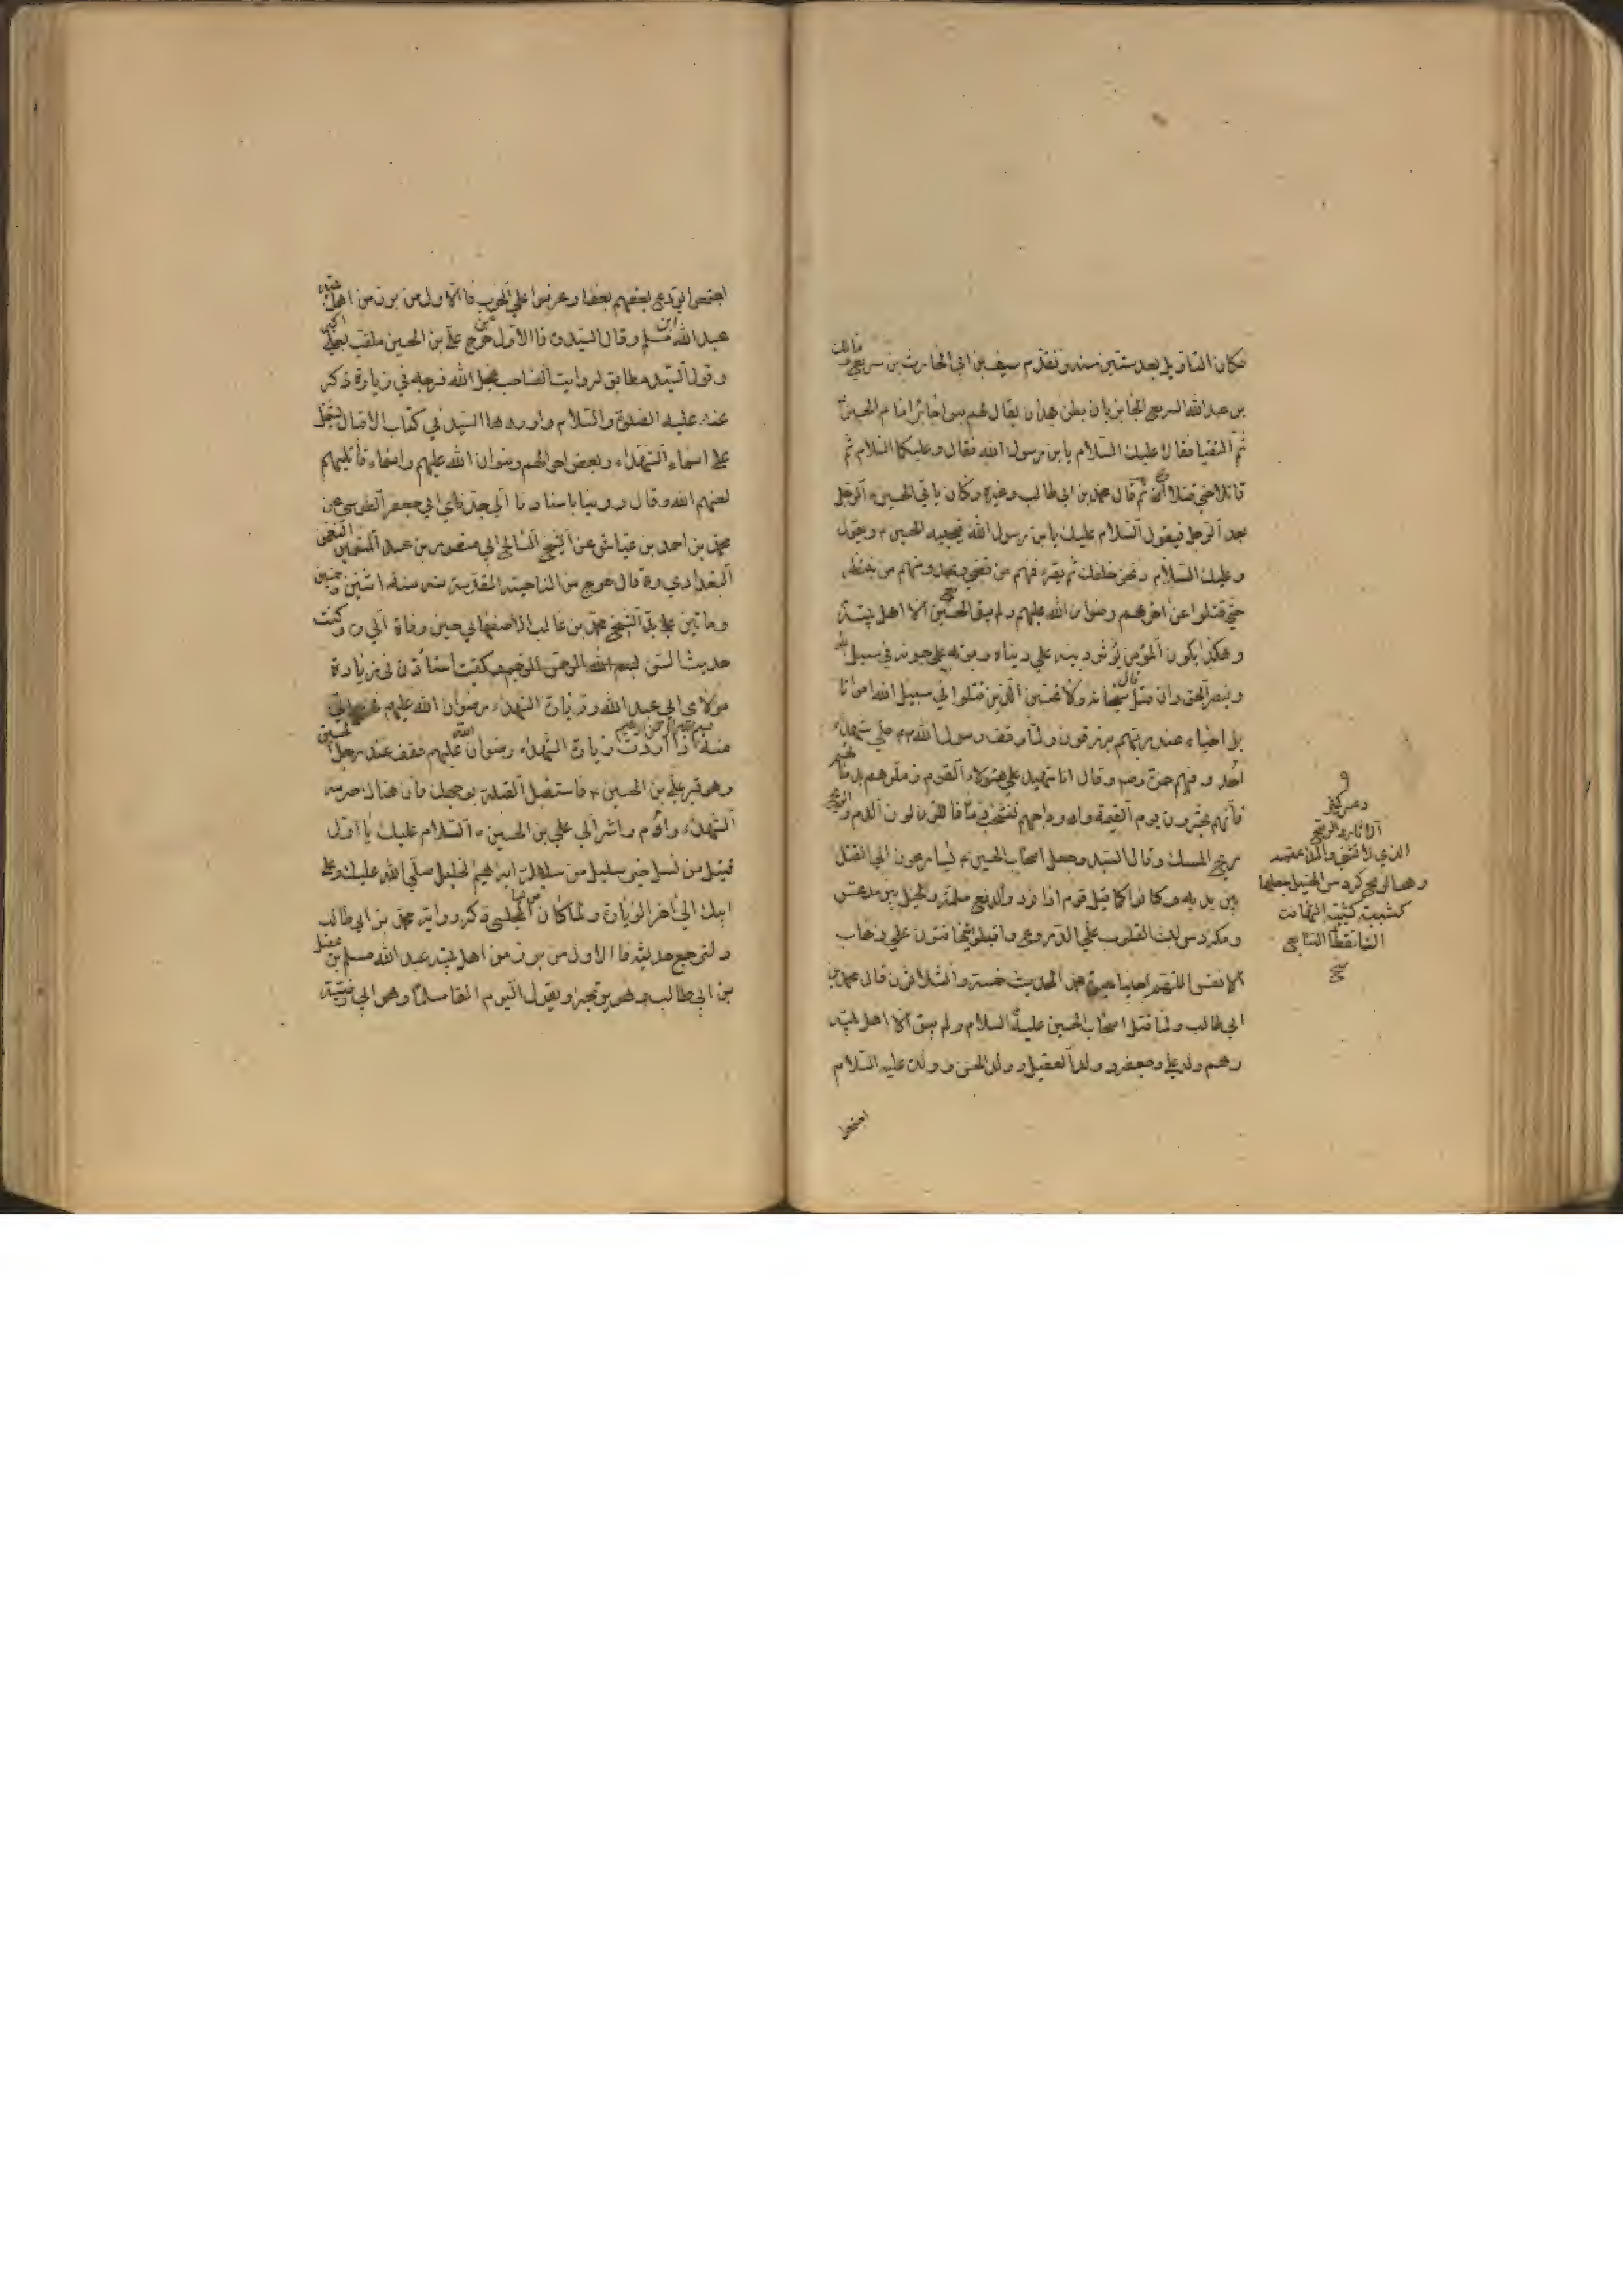 فكان التاويل بعد ستين سنه وتقدم سيف بن ابي الحارث بن سريع ومالك
بن عبد الله السريع الجابريان بطن همدان يقال لهم بنو جابر امام الحسين
ثم التفتا فقالا عليك السلام يابن رسول الله فقال وعليكما السلام ثم
قاتلا حتى قتلا ثم قال محمد بن ابي طالب وغيره وكان ياتي الحسين الرجل
بعد الرجل فيقول السلام عليك يابن رسول الله فيجيبه الحسين ويقول
وعليك السلام ونحن خلفك ثم يقرء فمنهم من قضى نحبه ومنهم من ينتظر
حتى قتلوا عن اخرهم رضوان الله عليهم ولم يبق مع الحسين الا اهل بيته
وهكذا يكون المؤمن يؤثر دينه على دنياه وموته على حيوته في سبيل الله
وينصر الحق وان قتل قال سبحانه ولا تحسبن الذين قتلوا في سبيل الله امواتا
بل احياء عند ربهم يرزقون ولما وقف رسول الله على شهداء
احد وفيهم حمزة رضه وقال انا شهيد على هؤلاء القوم زملوهم بدمائهم
فانهم يحشرون يوم القيمة واوداجهم تشخب دما فاللون لون الدم والريح
ريح المسك وقال السيد وجعل اصحاب الحسين يسارعون الى القتل
بين يديه وكانوا كما قيل قوم اذا نودوا لدفع ملمة والخيل بين مدعس
ومكردس لبسوا القلوب على الدروع واقبلوا يتهافتون على ذهاب
الانفس الحديث خمسة والثلاثون قال محمد بن
ابي طالب ولما قتل اصحاب الحسين عليه السلام ولم يبق الا اهل بيته
وهم ولد علي وجعفر وولد العقيل وولد الحسن وولده عليه السلام
اجتمعوا
دعس كثير
الاثار والرمح
الذي لا ينثني والمدعس
كشيبة كثيبة التهافت
التساقط التتابع
اجتمعوا يودع بعضهم بعضا وعزموا على الحرب فالاول من برز من اهل بيته
عبد الله ابن مسلم وقال السيد فالاول من خرج علي بن الحسين ملقب بعلي اكبر
وقول السيد مطابق لرواية الصاحب عجل الله فرجه في زيارة ذكر
عنه عليه الصلوة والسلام واوردها السيد في كتاب الاقبال يشتمل
على اسماء الشهداء وبعض احوالهم رضوان الله عليهم واسماء قاتليهم
لعنهم الله وقال روينا باسنادنا الى جدي ابي جعفر الطوسي عن
محمد بن احمد بن عياش عن الشيخ الصالح ابي منصور بن عبد المنعم بن النعمان
البغدادي ره قال خرج من الناحية المقدسة سنه اثنين وخمسين
وماتين على يد الشيخ محمد بن غالب الاصفهاني حين وفاة ابي ره وكنت
حديث السن وكتبت استاذن في زيارة
مولاي ابي عبد الله وزيارة الشهداء رضوان الله عليهم فخرج الي
بسم الله الرحمن الرحيم
منه اذا اردت زيارة الشهداء رضوان الله عليهم فقف عند رجل الحسين
وهو قبر علي بن الحسين فاستقبل القبلة بوجهك فان هناك حومة
الشهداء واوم واشر الى علي بن الحسين السلام عليك يا اول
قتيل من نسل خير سليل من سلالة ابرهيم الخليل صلى الله عليك وعلى
ابيك الى اخر الزيارة ولما كان المجلسي ذكر رواية محمد بن ابي طالب
ولنرجع حديثه فالاول من برز من اهل بيته عبد الله مسلم بن عقيل
بن ابي طالب وهو يرتجز ويقول اليوم القا مسلما وهو ابي وفتية